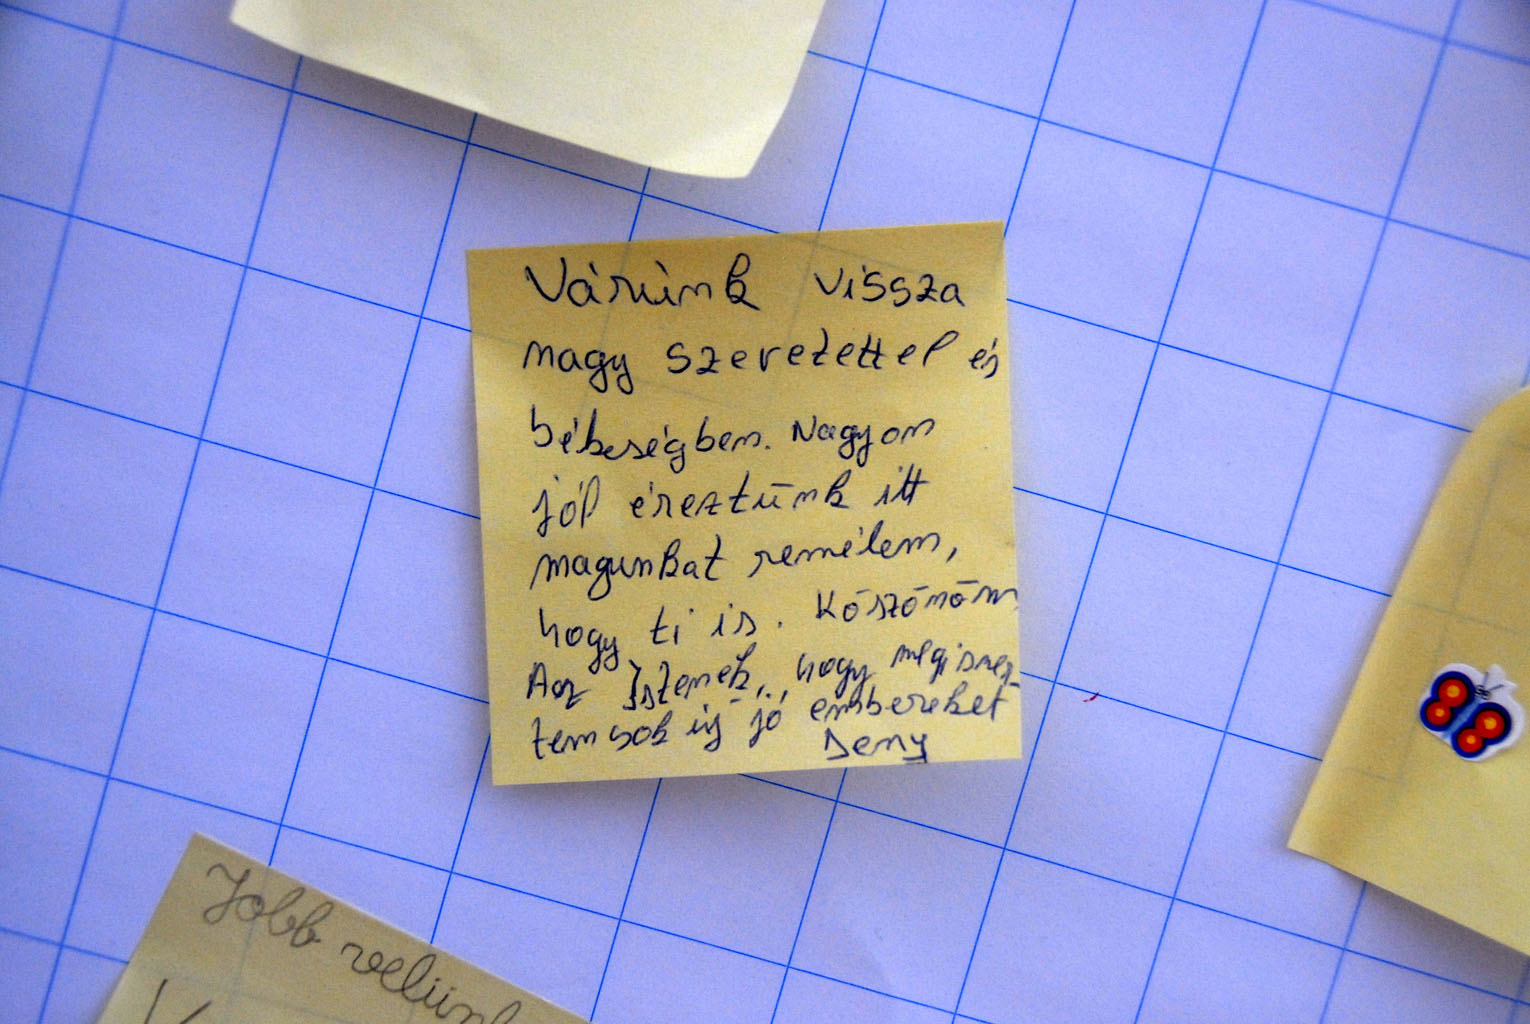 Várunk vissza
nagy szeretettel és
békeségben. Nagyon
jól éreztūnk itt
magunkat remélem,
hogy ti is. Kōszōnōm
Az Istenek, hogy megismer-
tem sok ijs jó embereket
Deny
Jobb velünk